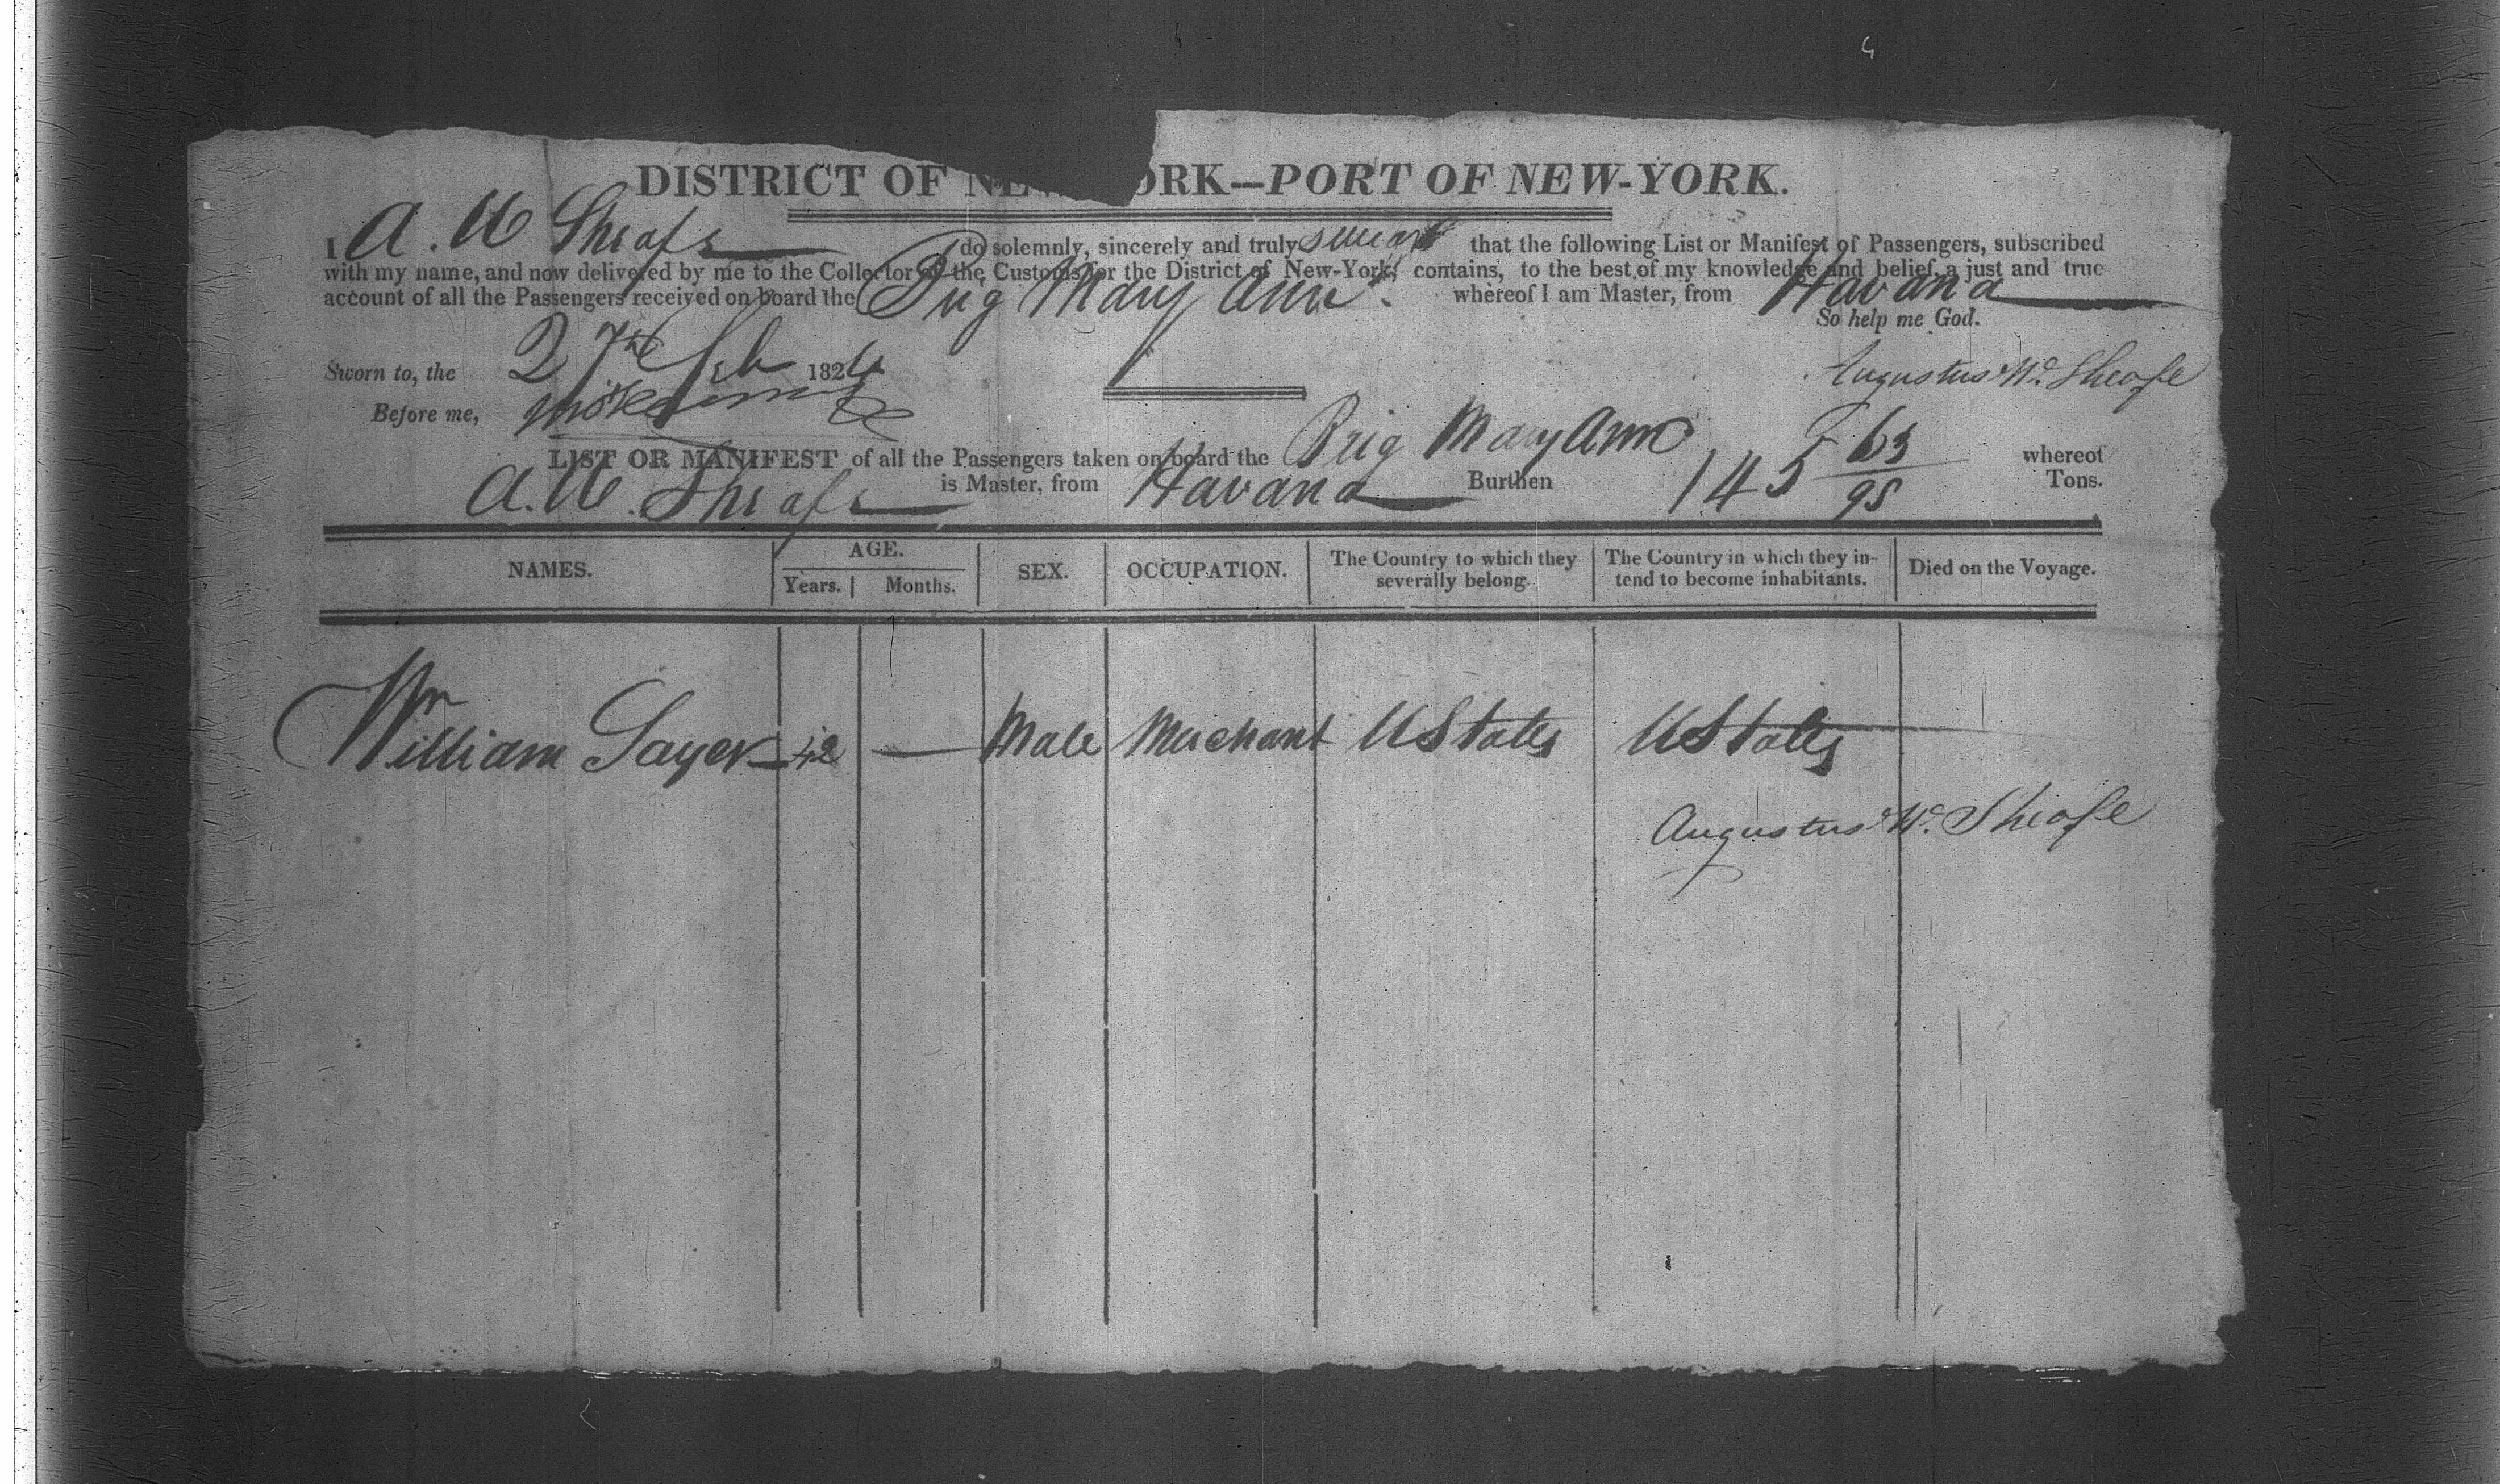 DISTRICT OF NEW-YORK—PORT OF NEW-YORK.
I A. W Sheafe do solemnly, sincerely and truly swear that the following List or Manifest of Passengers, subscribed
with my name, and now delivered by me to the Collector of the Customs for the District of New-York, contains, to the best of my knowledge and belief, a just and true
account of all the Passengers received on board the Brig Mary Ann whereof I am Master, from Havana
So help me God.
Sworn to, the 27th Feb 1824
Augustus Wd. Sheafe
Before me,
LIST OR MANIFEST of all the Passengers taken on board the Brig Mary Ann whereof
A. W. Sheafe is Master, from Havana Burthen 145 63/95 Tons.
NAMES. AGE. Years. Months. SEX. OCCUPATION. The Country to which they severally belong. The Country in which they intend to become inhabitants. Died on the Voyage.
Mr
William Sayer 42 — Male Merchant UStates UStates
Augustus Wd. Sheafe